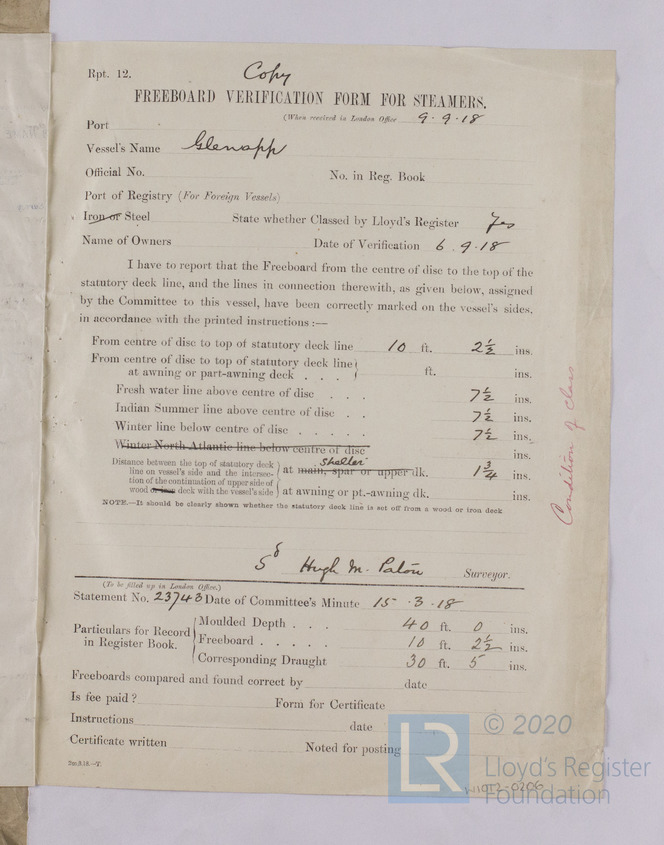 Rpt. 12.
Copy
FREEBOARD VERIFICATION FORM FOR STEAMERS.
(When received in London Office 9.9.18
Port
Vessel's Name Glenapp
Official No. No. in Reg. Book
Port of Registry (For Foreign Vessels)
Iron or Steel State whether Classed by Lloyd's Register Yes
Name of Owners Date of Verification 6.9.18
I have to report that the Freeboard from the centre of disc to the top of the
statutory deck line, and the lines in connection therewith, as given below, assigned
by the Committee to this vessel, have been correctly marked on the vessel's sides,
in accordance with the printed instructions:—
From centre of disc to top of statutory deck line 10 ft. 2½ ins.
From centre of disc to top of statutory deck line
at awning or part-awning deck . . . ft. ins.
Fresh water line above centre of disc . . . 7½ ins.
Indian Summer line above centre of disc . . 7½ ins.
Winter line below centre of disc . . . . . 7½ ins.
Winter North Atlantic line below centre of disc ins.
Distance between the top of statutory deck
line on vessel's side and the intersec-
tion of the continuation of upper side of
wood or iron deck with the vessel's side
shelter
at main, spar or upper dk. 1¾ ins.
at awning or pt.-awning dk. ins.
NOTE.—It should be clearly shown whether the statutory deck line is set off from a wood or iron deck
Condition of Class
Sd Hugh M. Paton Surveyor.
(To be filled up in London Office.)
Statement No. 23743 Date of Committee's Minute 15.3.18
Particulars for Record
in Register Book.
Moulded Depth . . . 40 ft. 0 ins.
Freeboard . . . . . 10 ft. 2½ ins.
Corresponding Draught 30 ft. 5 ins.
Freeboards compared and found correct by date
Is fee paid? Form for Certificate
Instructions date
Certificate written Noted for posting
2m,3,18.—T.
LR © 2020
Lloyd's Register
Foundation
W1012-0206